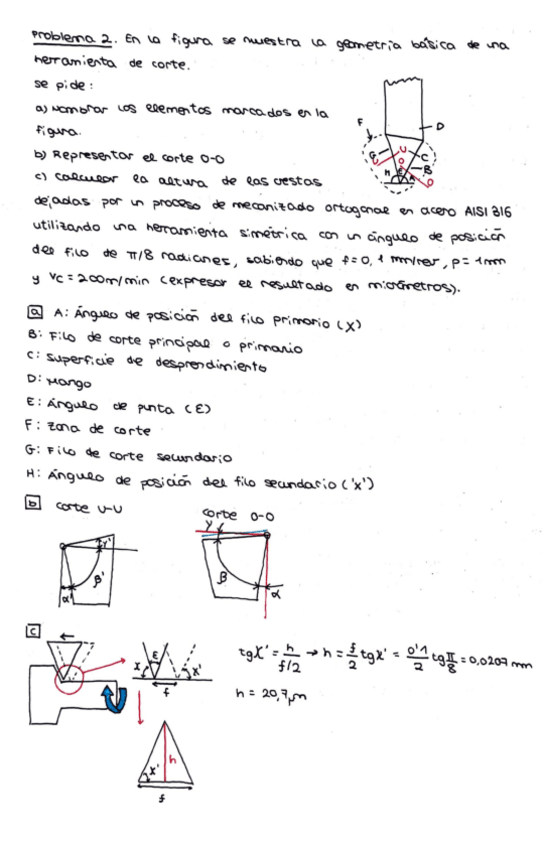 Problema 2. En la figura se muestra la geometría básica de una
herramienta de corte.
se pide:
a) Nombrar los elementos marcados en la
figura.
b) Representar el corte O-O
c) calcular la altura de las crestas
dejadas por un proceso de mecanizado ortogonal en acero AISI 316
utilizando una herramienta simétrica con un ángulo de posición
del filo de π/8 radianes, sabiendo que f=0,1 mm/rev, p=1mm
y Vc=200m/min (expresar el resultado en micrómetros).
F
D
G
U
C
O
B
H
E
A
U
O
a A: Ángulo de posición del filo primario (X)
B: Filo de corte principal o primario
C: Superficie de desprendimiento
D: Mango
E: Ángulo de punta (Ɛ)
F: Zona de corte
G: Filo de corte secundario
H: Ángulo de posición del filo secundario ('x')
b corte U-U
corte O-O
γ'
β'
α'
γ
β
α
c
X
Ɛ
X'
f
tgX' = h / f/2 → h = f/2 tgX' = 0'1/2 tg π/8 = 0,0207 mm
h = 20,7μm
h
X'
f